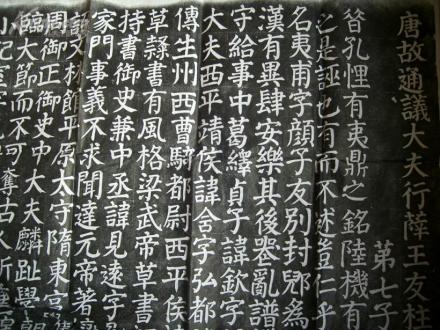 唐故通議大夫行薛王友柱
第七子
昝孔悝有夷鼎之銘陸機有
之是誣也有而不述豈仁乎
名夷甫字顏子友別封郳為
漢有異肆安樂其後喪亂譜
字給事中葛繹貞子諱欽字
大夫西平靖侯諱含字弘都
傳生州西曹騎都尉西平侯
草隸書有風格梁武帝草書
持書御史兼中丞諱見遠字
家門事義不求聞達元帝著
文林館平原太守隋東宮
周御正御史中大夫麟趾學
臨大節而不可奪古人所